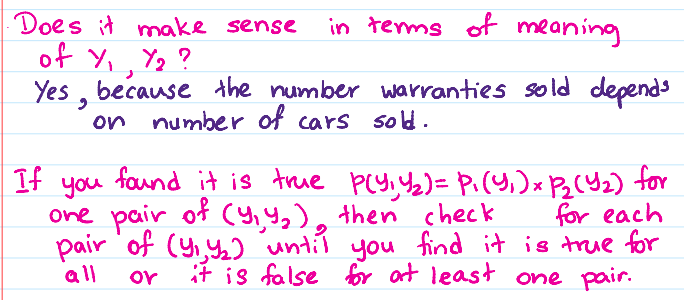 Does it make sense in terms of meaning
of Y₁, Y₂?
Yes, because the number warranties sold depends
on number of cars sold.
If you found it is true p(y₁,y₂)= p₁(y₁)×p₂(y₂) for
one pair of (y₁,y₂), then check for each
pair of (y₁,y₂) until you find it is true for
all or it is false for at least one pair.